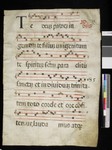 Te deum patrem in
genitum te filium unigenitum
te spiritum para clitum
sanctam et individuam trinita
tem toto corde et ore con
lauda mus atq